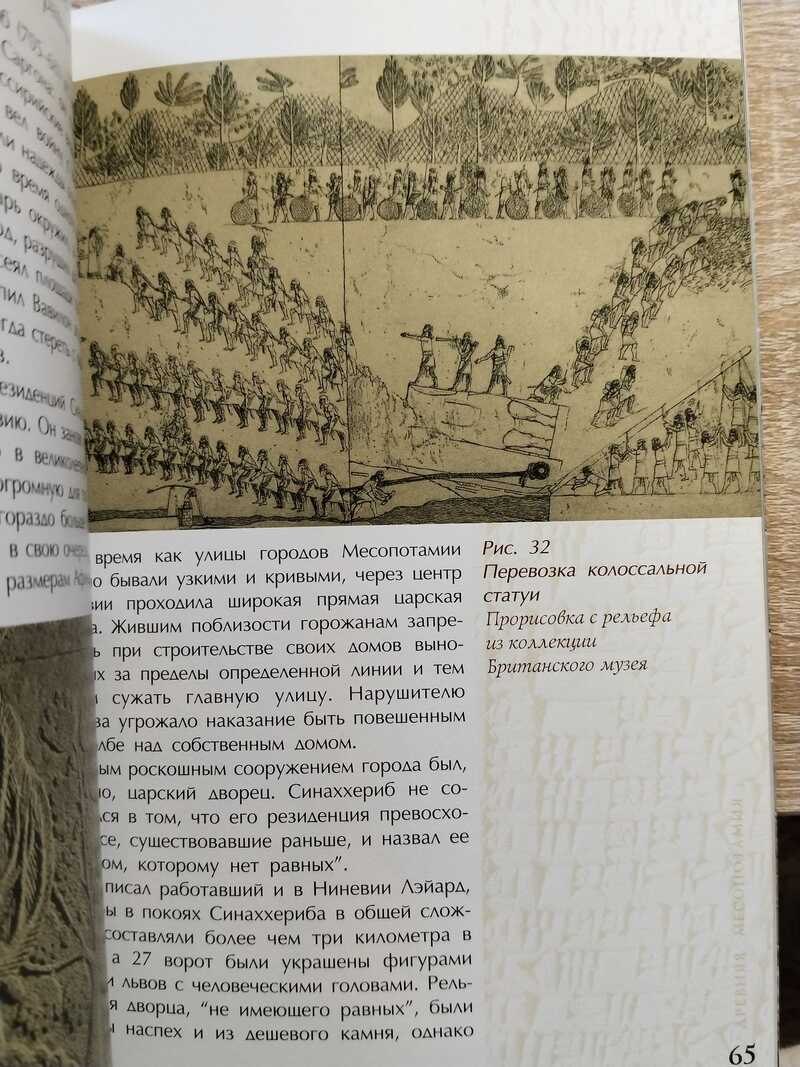 6 (705-
Саргона
ссирийской
вел войну
ли надежда
время
рь окружи
од, разруши
сеял площад
пил Вавилон
гда стереть
в.
езиденций
вию. Он
о в великоле
огромную для
гораздо боль
в свою очеред
размерам
время как улицы городов Месопотамии
о бывали узкими и кривыми, через центр
вии проходила широкая прямая царская
а. Жившим поблизости горожанам запре-
ь при строительстве своих домов выно-
ых за пределы определенной линии и тем
м сужать главную улицу. Нарушителю
за угрожало наказание быть повешенным
лбе над собственным домом.
ым роскошным сооружением города был,
но, царский дворец. Синаххериб не со-
лся в том, что его резиденция превосхо-
се, существовавшие раньше, и назвал ее
ом, которому нет равных”.
писал работавший и в Ниневии Лэйард,
ы в покоях Синаххериба в общей слож-
составляли более чем три километра в
а 27 ворот были украшены фигурами
и львов с человеческими головами. Рель-
я дворца, “не имеющего равных”, были
ы наспех и из дешевого камня, однако
Рис. 32
Перевозка колоссальной
статуи
Прорисовка с рельефа
из коллекции
Британского музея
ДРЕВНЯЯ МЕСОПОТАМИЯ
65